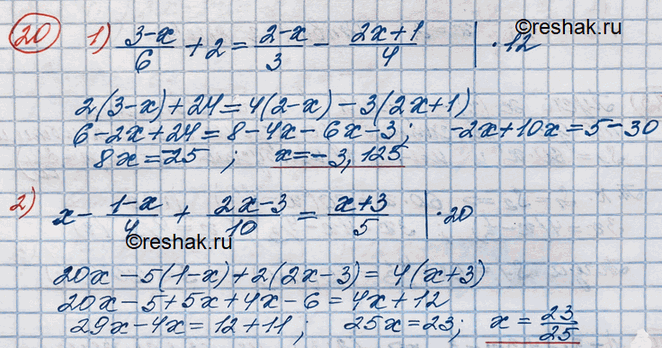 ©reshak.ru
20 1) (3-x)/6 + 2 = (2-x)/3 - (2x+1)/4 | · 12
2(3-x)+24=4(2-x)-3(2x+1)
6-2x+24=8-4x-6x-3; -2x+10x=5-30
8x=-25; x=-3,125
©reshak.ru
2) x - (1-x)/4 + (2x-3)/10 = (x+3)/5 | · 20
©reshak.ru
20x-5(1-x)+2(2x-3)=4(x+3)
20x-5+5x+4x-6=4x+12
29x-4x=12+11; 25x=23; x=23/25